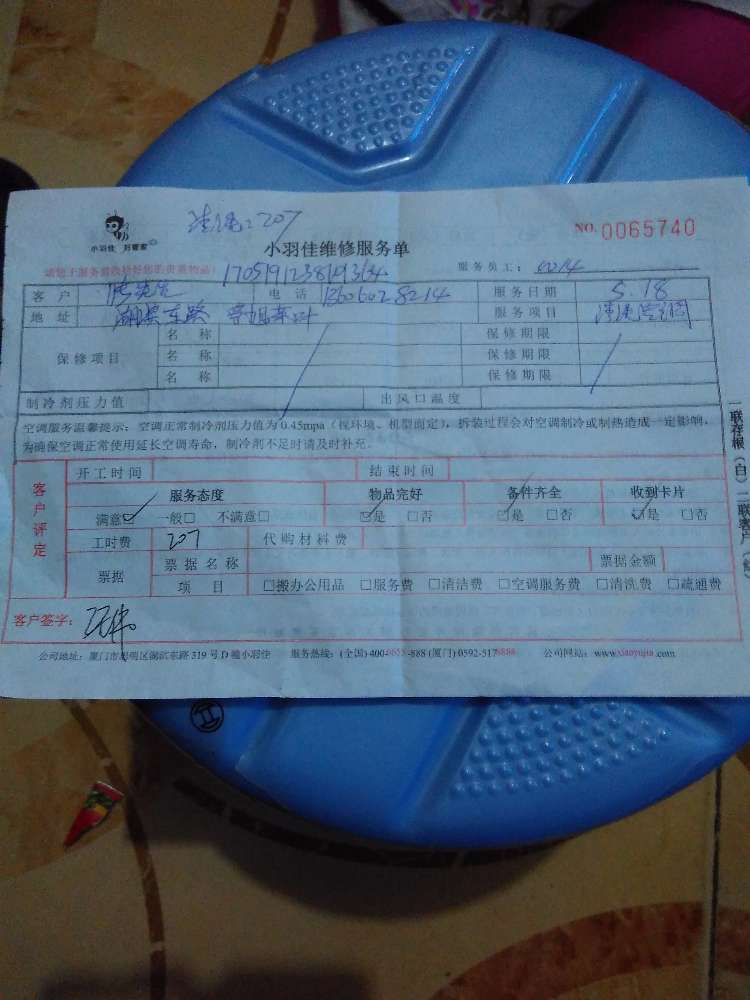 小羽佳 好管家
NO. 0065740
小羽佳维修服务单
服务员工：
客户 电话 服务日期 5.18
地址 服务项目
保修项目 名称 保修期限
名称 保修期限
名称 保修期限
制冷剂压力值 出风口温度
空调服务温馨提示：空调正常制冷剂压力值为0.45mpa（视环境、机型而定），拆装过程会对空调制冷或制热造成一定影响，
为确保空调正常使用延长空调寿命，制冷剂不足时请及时补充。
客户评定
开工时间 结束时间
服务态度 物品完好 备件齐全 收到卡片
满意☑ 一般□ 不满意□ ☑是 □否 ☑是 □否 ☑是 □否
工时费 207 代购材料费
票据 票据名称 票据金额
项目 □搬办公用品 □服务费 □清洁费 □空调服务费 □清洗费 □疏通费
客户签字：
公司地址：厦门市思明区湖滨东路319号D幢小羽佳 服务热线：(全国) 400- -888 (厦门) 0592-5178888 公司网站：www.xiaoyujia.com